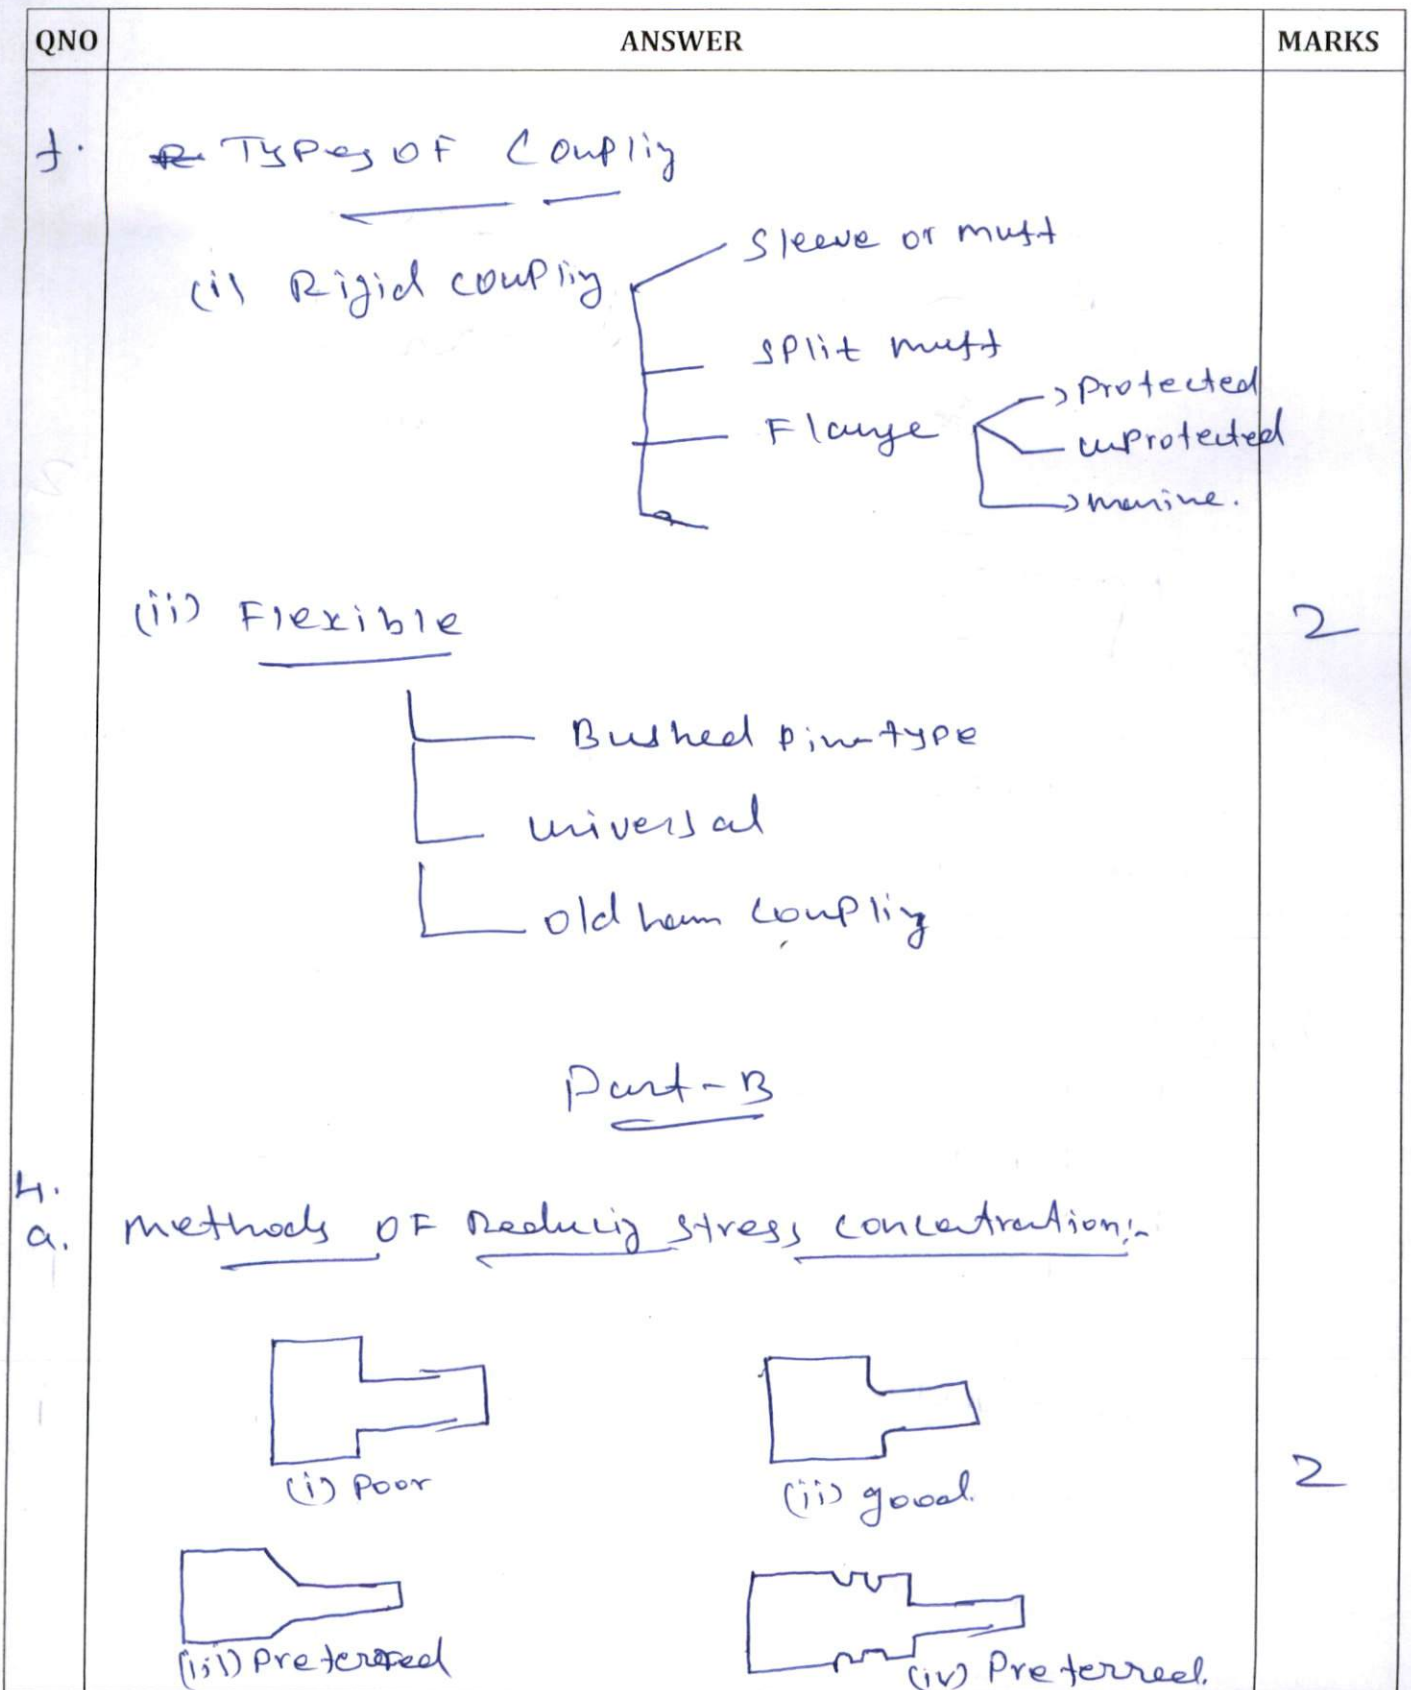 QNO ANSWER MARKS
f. Types OF Coupling
(i) Rigid coupling
Sleeve or muff
split muff
Flange
Protected
unprotected
marine.
(ii) Flexible 2
Bushed pin-type
universal
oldham coupling
Part-B
4.
a. methods OF Reducing stress concentration:-
(i) Poor
(ii) good. 2
(iii) Preferred
(iv) Preferred.